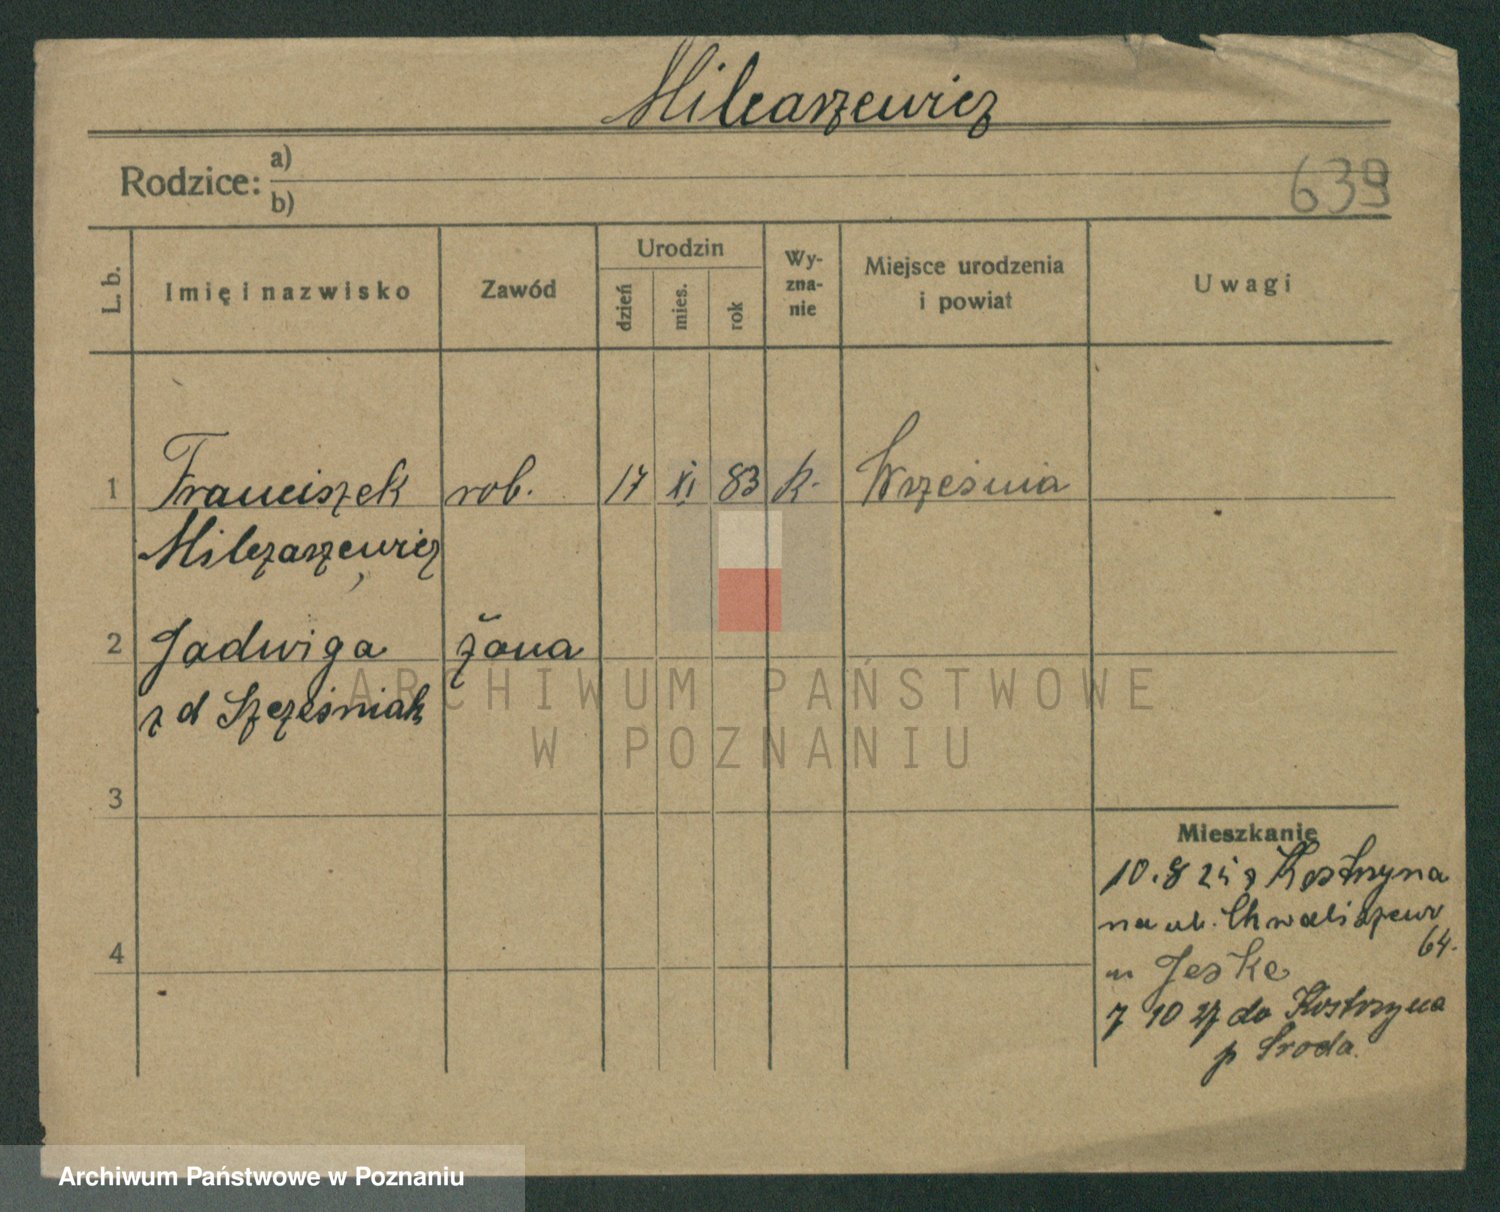 Milcaszewicz
Rodzice: a)
b)
639
L. b.
Imię i nazwisko
Zawód
Urodzin
dzień
mies.
rok
Wy-
zna-
nie
Miejsce urodzenia
i powiat
Uwagi
1 Franciszek rob. 17 XI 83 k. Września
Milczaszewicz
2 Jadwiga żona
z d Szcześniak
ARCHIWUM PAŃSTWOWE
W POZNANIU
3
4
Mieszkanie
10. 8 25 z Kostrzyna
na ul. Chwaliszewo
64.
u Jeske
7 10 27 do Kostrzyna
p Sroda.
Archiwum Państwowe w Poznaniu